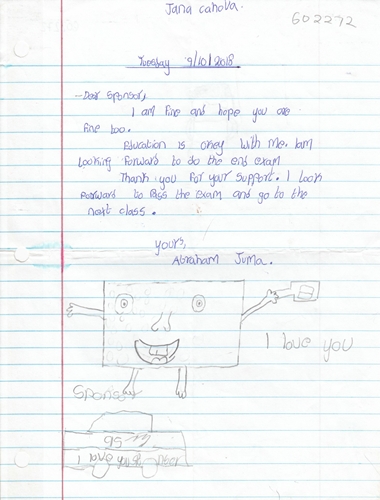 Jana cahova.
602272
Tuesday 9/10/2018
Dear Sponsor,
I am fine and hope you are
fine too.
Education is okey with me. Iam
Looking forward to do the end exam
Thank you for your support. I look
forward to pass the exam and go to the
next class.
yours,
Abraham Juma.
I love you
Sponsor